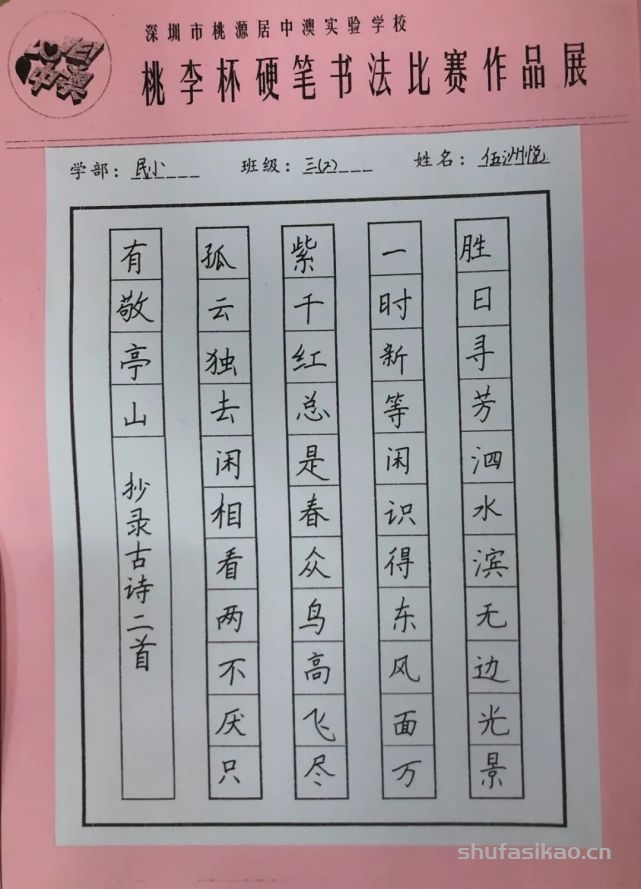 深圳市桃源居中澳实验学校
桃李杯硬笔书法比赛作品展
中澳
学部：民小 班级：三(2) 姓名：伍洲悦
胜日寻芳泗水滨无边光景
一时新等闲识得东风面万
紫千红总是春众鸟高飞尽
孤云独去闲相看两不厌只
有敬亭山 抄录古诗二首
shufasikao.cn